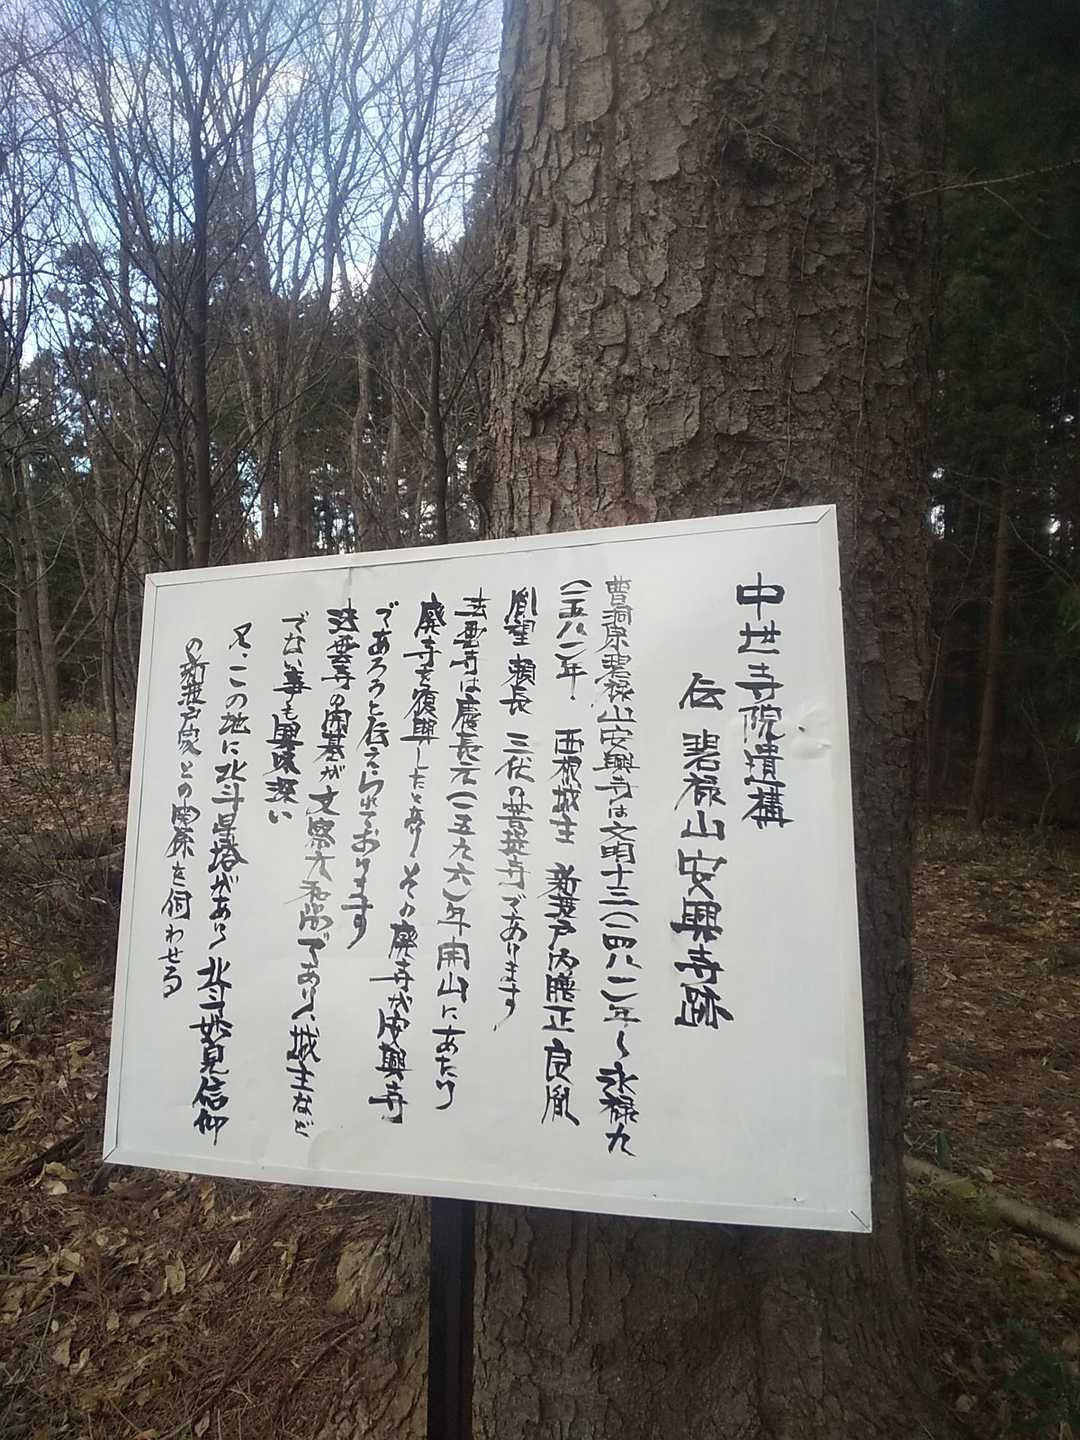 中世寺院遺構
伝 碧禄山安興寺跡
曹洞宗碧禄山安興寺は文明十三(一四八一)年〜永禄九
(一五八一)年 西根城主 新渡戸内膳正 良胤
胤望 頼長 三代の菩提寺であります
法雲寺は慶長元(一五九六)年開山にあたり
廃寺を復興したと あり その廃寺が安興寺
であろうと伝えられております
法雲寺の開基が文察大和尚であり、城主など
でない事も興味深い
又、この地に北斗星塔があり 北斗妙見信仰
の新渡戸家との関係を伺わせる